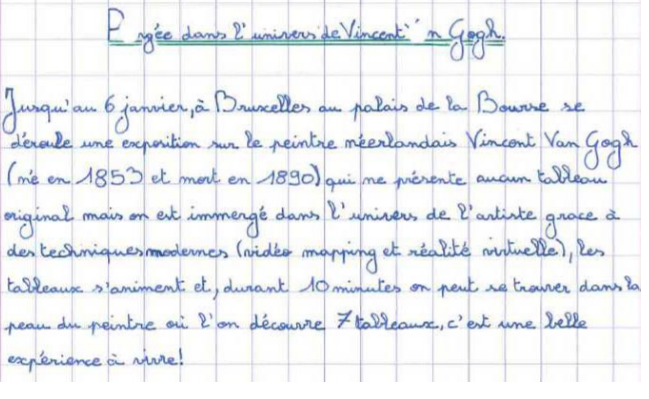 P gée dans l'univers de Vincent n Gogh.
Jusqu'au 6 janvier, à Bruxelles au palais de la Bourse se
déroule une exposition sur le peintre néerlandais Vincent Van Gogh
(né en 1853 et mort en 1890) qui ne présente aucun tableau
original mais on est immergé dans l'univers de l'artiste grace à
des techniques modernes (vidéo mapping et réalité virtuelle), les
tableaux s'animent et, durant 10 minutes on peut se trouver dans la
peau du peintre où l'on découvre 7 tableaux, c'est une belle
expérience à vivre!